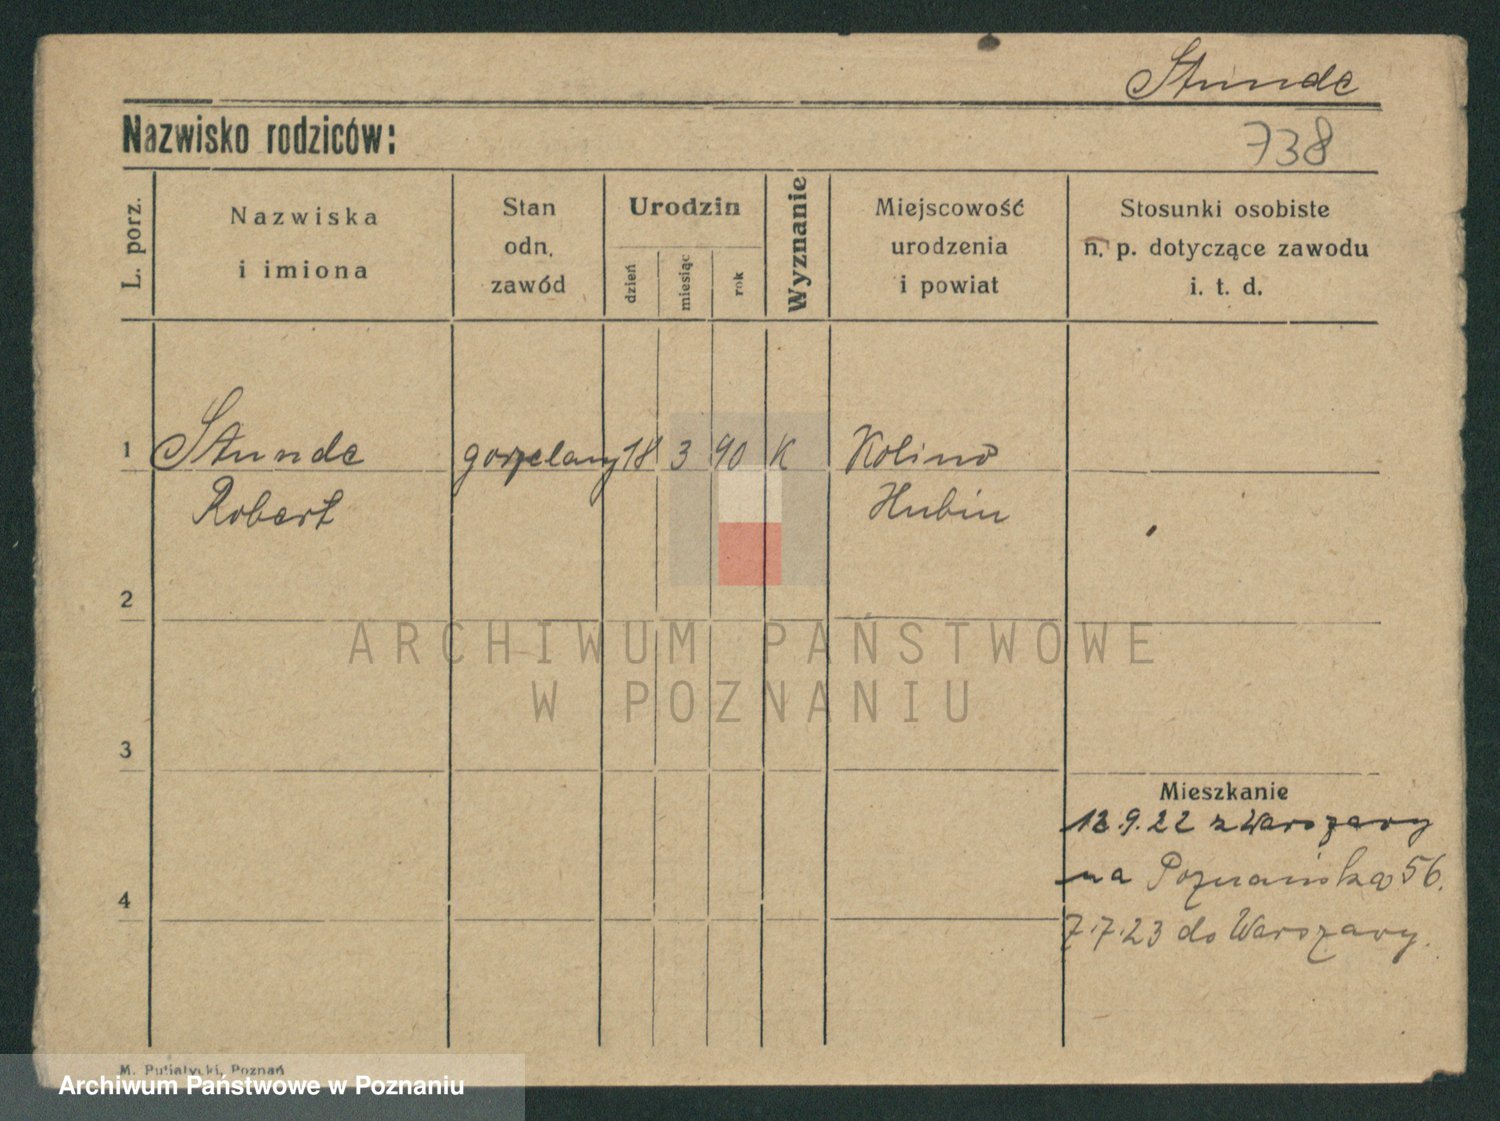 Stunde
Nazwisko rodziców:
738
L. porz.
Nazwiska
i imiona
Stan
odn.
zawód
Urodzin
dzień
miesiąc
rok
Wyznanie
Miejscowość
urodzenia
i powiat
Stosunki osobiste
n. p. dotyczące zawodu
i. t. d.
1 Stunde gorzelany 18 3 90 K Kolino
Robert Hubin
2
ARCHIWUM PAŃSTWOWE
W POZNANIU
3
Mieszkanie
12.9.22 z Warszawy
na Poznańska 56.
4
7.7.23 do Warszawy.
M. Putiatycki, Poznań
Archiwum Państwowe w Poznaniu